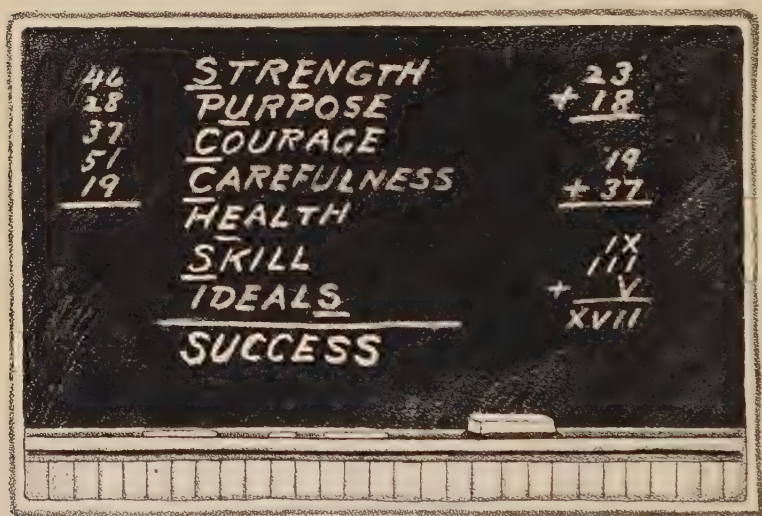 46
28
37
51
19
STRENGTH
PURPOSE
COURAGE
CAREFULNESS
HEALTH
SKILL
IDEALS
SUCCESS
23
+ 18
19
+ 37
IX
III
+ V
XVII